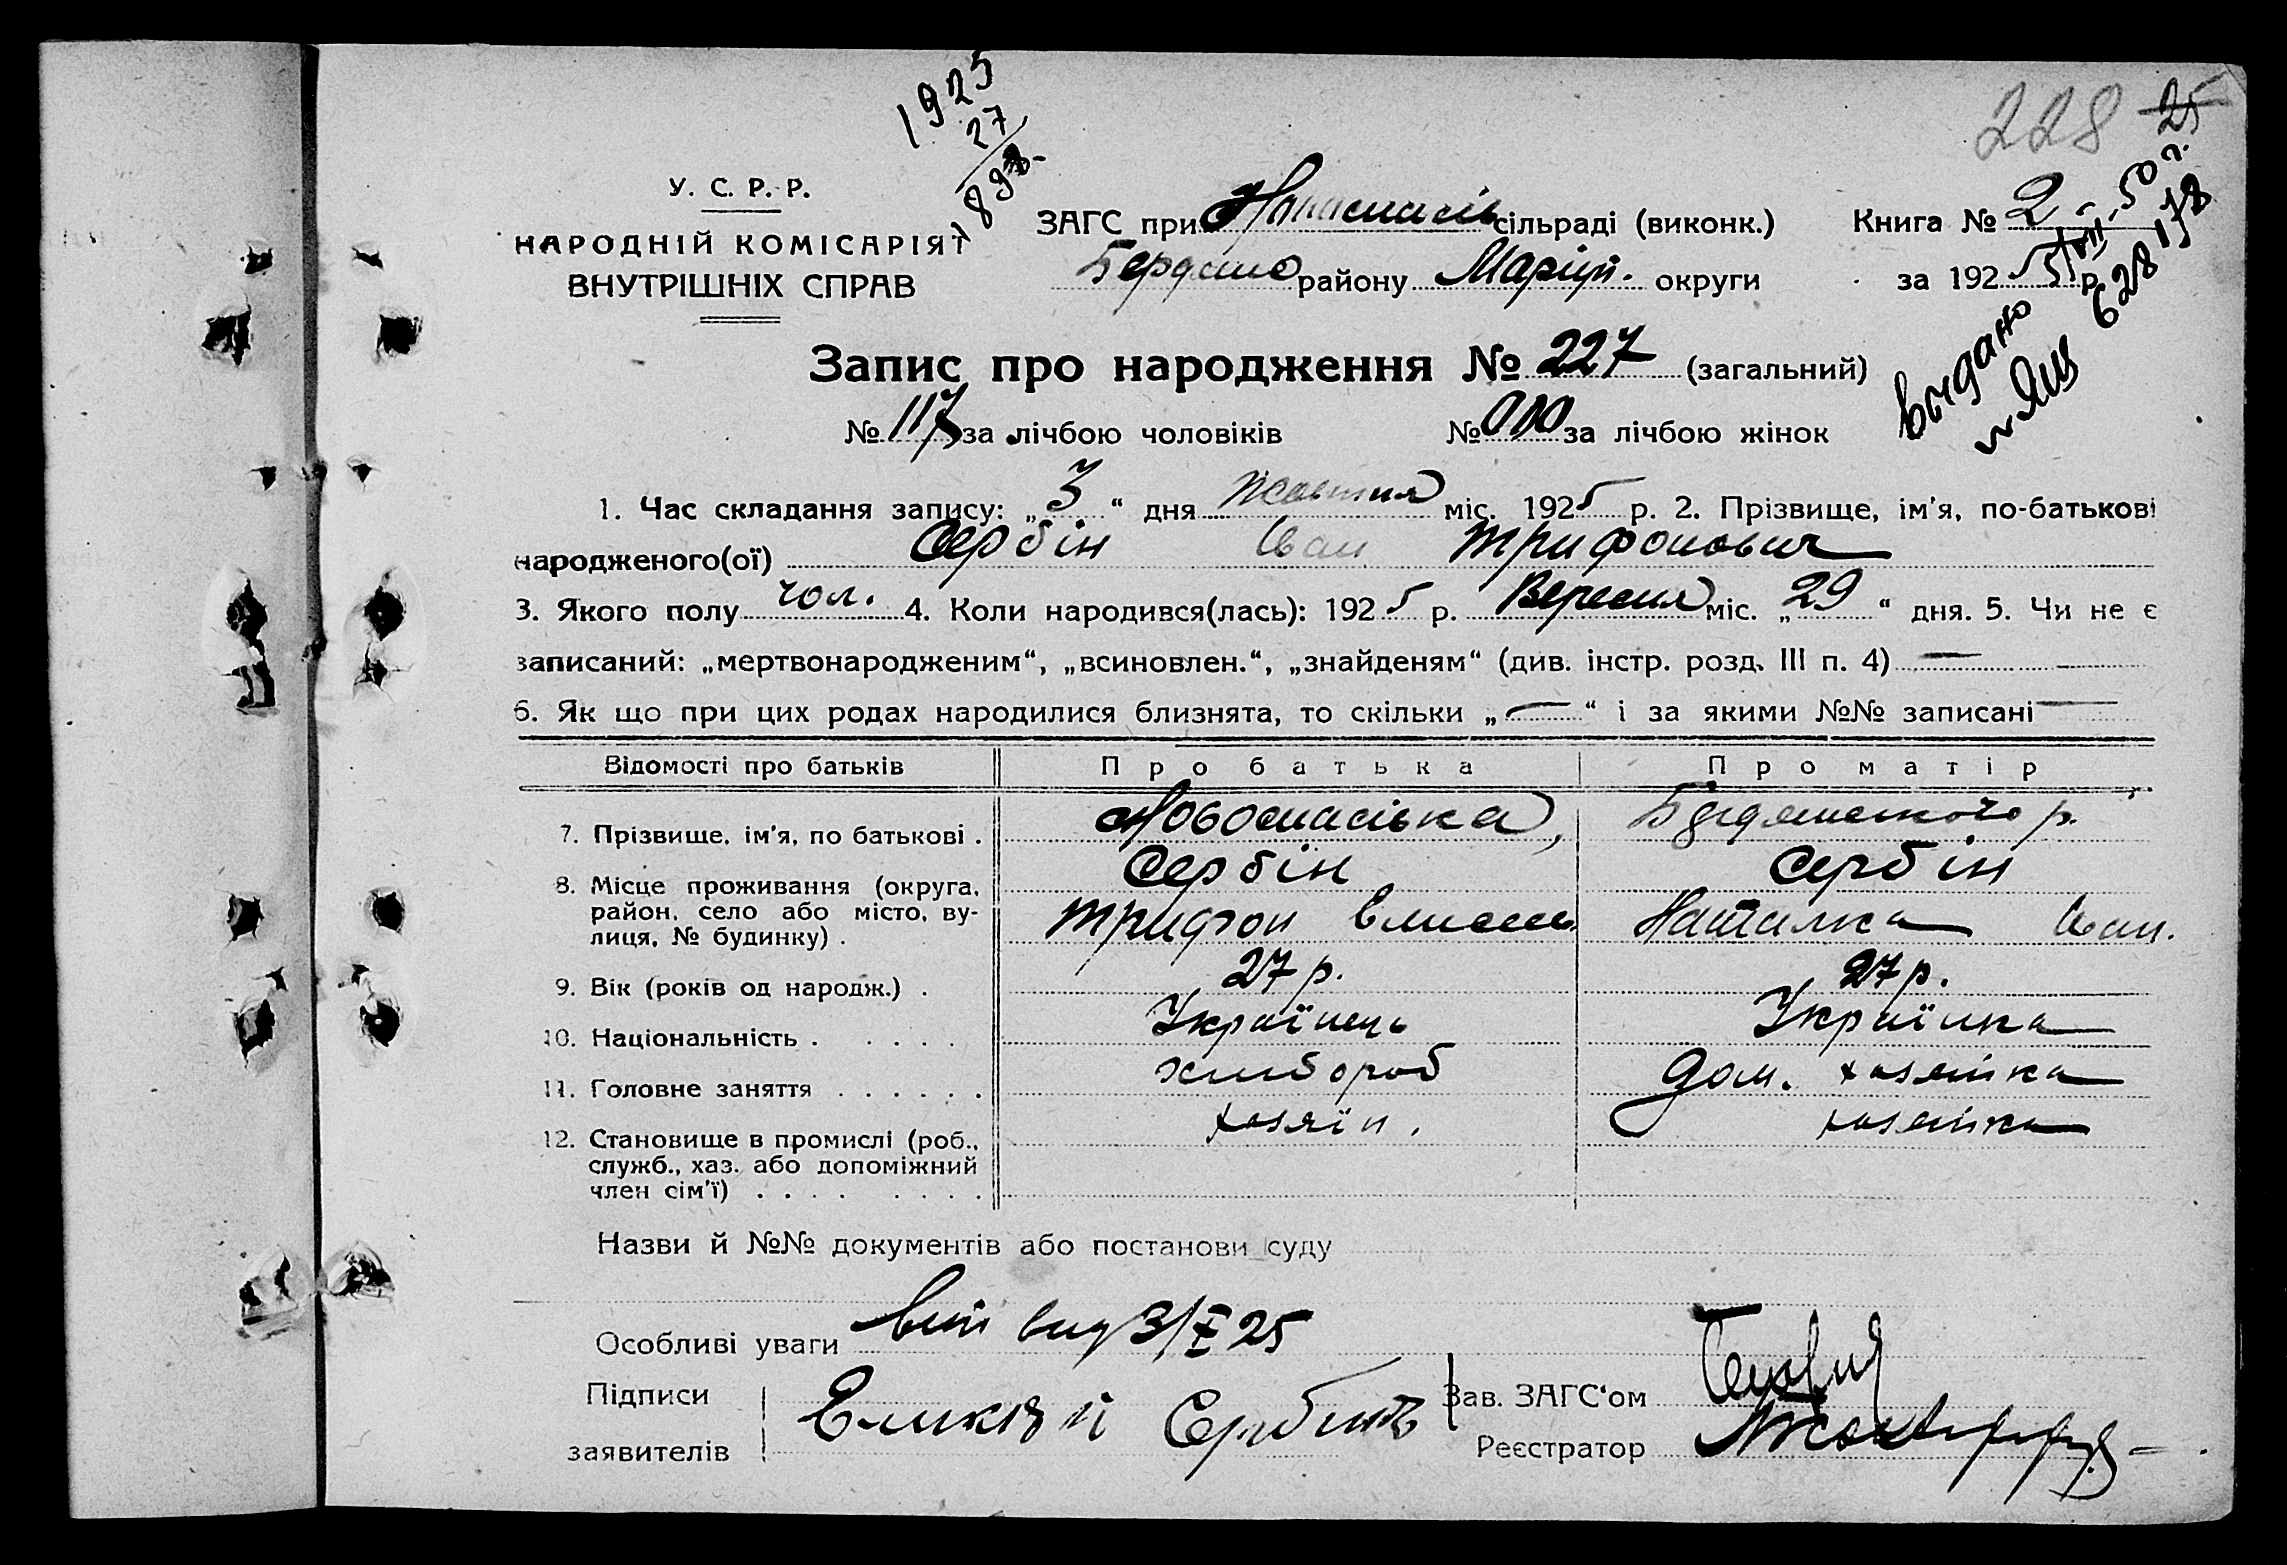 1925
27
1898
228
25
У. С. Р. Р.
НАРОДНІЙ КОМІСАРІЯТ
ВНУТРІШНІХ СПРАВ
ЗАГС при сільраді (виконк.)
району Маріуп. округи
Книга № 2
за 1925 р.
выдано
ЯЩ 628178
Запис про народження № 227 (загальний)
№ 117 за лічбою чоловіків № 010 за лічбою жінок
1. Час складання запису: „3“ дня Жовтня міс. 1925 р. 2. Прізвище, ім'я, по-батькові
народженого(ої) Сербін Іван Трифонович
3. Якого полу чол. 4. Коли народився(лась): 1925 р. Вересня міс. „29“ дня. 5. Чи не є
записаний: „мертвонародженим“, „всиновлен.“, „знайденям“ (див. інстр. розд. III п. 4) —
6. Як що при цих родах народилися близнята, то скільки „—“ і за якими №№ записані —
Відомості про батьків Про батька Про матір
7. Прізвище, ім'я, по батькові . Новоспаська, Бердянського р.
Сербін Сербін
8. Місце проживання (округа,
район, село або місто, ву-
лиця, № будинку) . Трифон Наталка Іван.
9. Вік (років од народж.) . 27 р. 27 р.
10. Національність . . . . . Українець Українка
11. Головне заняття . . . . . . хлібороб дом. хазяйка
12. Становище в промислі (роб.,
служб., хаз. або допоміжний
член сім'ї) . . . . . . . . хазяїн. хазяйка
Назви й №№ документів або постанови суду
Особливі уваги вит вид 3/X 25
Підписи
заявителів Сербинъ
Зав. ЗАГС'ом
Реєстратор